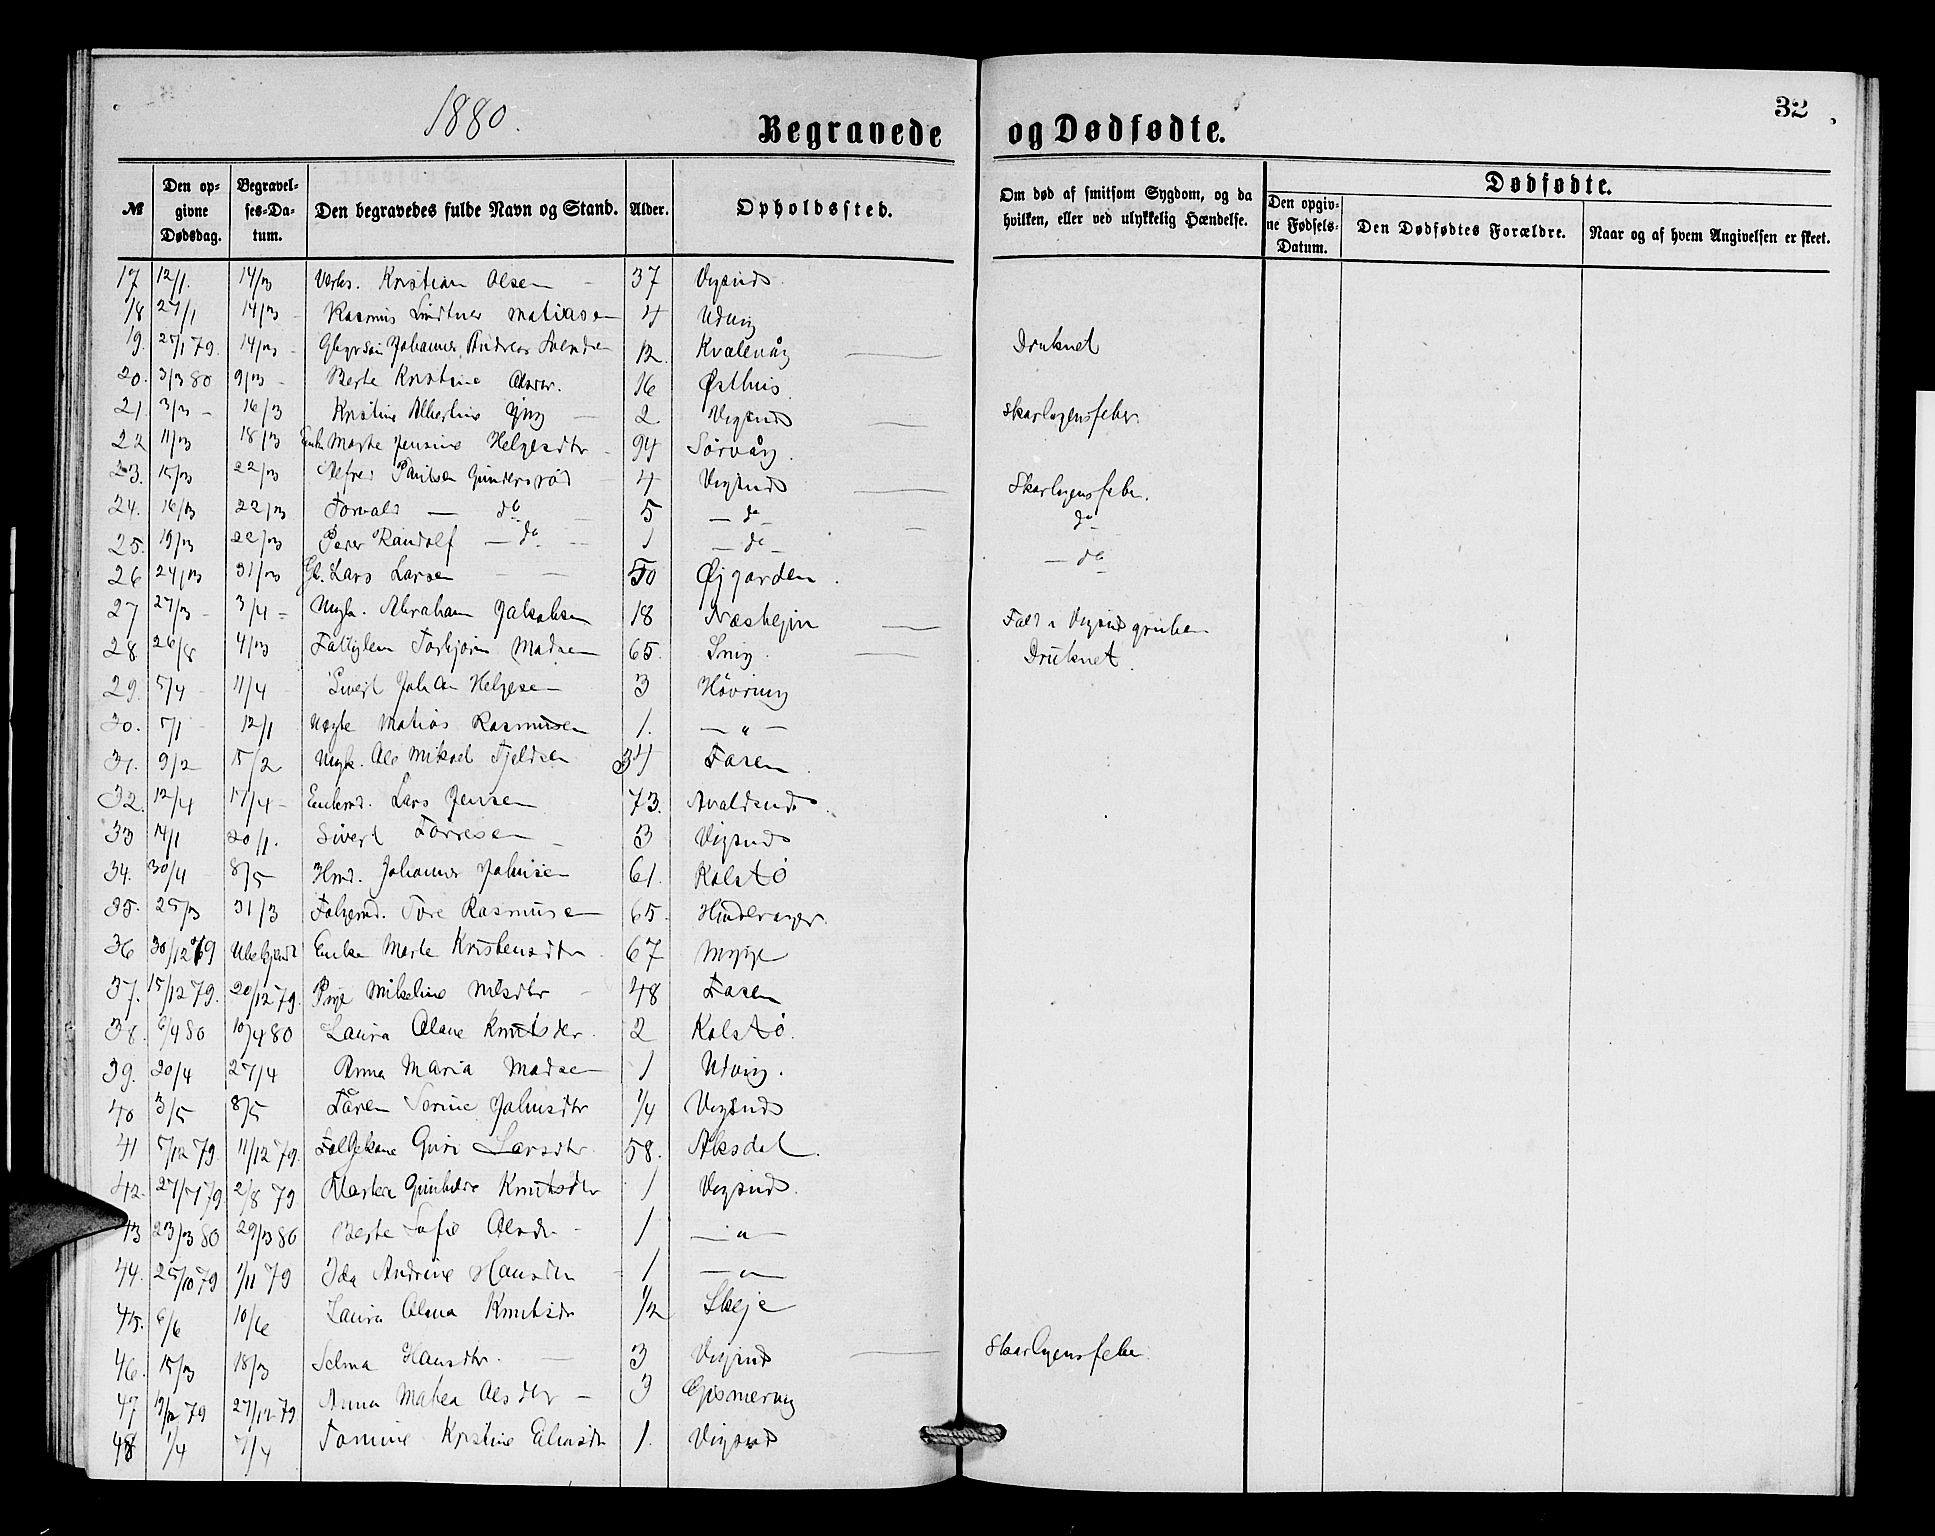 1880.
32
Begravede og Dødfødte.
№
Den opgivne Dødsdag.
Begravelses-Datum.
Den begravedes fulde Navn og Stand.
Alder.
Opholdssted.
Om død af smitsom Sygdom, og da hvilken, eller ved ulykkelig Hændelse.
Dødfødte.
Den opgivne Fødsels-Datum.
Den Dødfødtes Forældre.
Naar og af hvem Angivelsen er skeet.
17 12/1. 14/3 Kristian Olsen 37
18 27/1 14/3 Rasmus Lindtner Matiasen 4 Udvig
19. 25/1 79. 14/3 Johannes Andreas 12. Kvalevåg Druknet
20. 3/3 80 9/3 Berte Kristine 16 Østhus
21. 3/3 16/3 Kristine Albertine 2 Vigsnds Skarlagensfeber
22 11/3 18/3 Enke Marte Jensine Helgesdtr 94 Sørvåg.
23. 15/3 22/3 Alfred Paulsen Gundersrød 4 Vigsnds Skarlagensfeber.
24. 16/3 22/3 Torvald — do 5 — do — do
25. 19/3 22/3 Peder Randolf — do 1 — do — — do
26 24/3 31/3 Lars Larsen 50 Øjgarden.
27 27/3 3/4 Ungk. Abraham Jakobsen 18 Fald i Vigsnds gruben
28. 4/3 Torbjørn Madsen 65. Druknet.
29. 5/4 11/4 Sivert Johan Helgesen 3 Høvring
30. 5/1 12/1 Matias Rasmussen 1. — " —
31. 9/2 15/2 Ungk. Ole Mikael Fjeldsen 34 Fosen
32. 12/4 17/4 Enkemd. Lars Jensen 73. Avaldsnds.
33 14/1 20/1. Sivert Torresen 3 Vigsnds
34. 30/4 8/5 Johannes Johnsen 61. Kolstø
35. 25/3 31/3 Tore Rasmusen 65. Hinderager.
36 30/12 79 Ubekjendt Enke Marte Kristensdtr 67
37. 15/12 79. 20/12 79. Pige Mikeline Nilsdtr 48 Fosen
38. 6/4 80 10/4 80 Laura Olane Knutsdtr. 2 Kolstø.
39. 20/4 27/4 Anna Maria Madsen 1 Udvig.
40 3/5 8/5 Sorine Johnsdtr 1/4 Vigsnds
41 5/12 79 11/12 79. Guri Larsdtr. 58. Aksdal.
42. 27/7 79 2/8 79 Gunhilde Knutsdtr 1 Vigsnds.
43 23/3 80 29/3 80 Berte Sofie Olsdtr 1 — " —
44. 25/10 79 1/11 79 Ida Andrine Hansdtr 1 — " —
45. 6/6 10/6 Laura Olena Knutsdtr 1/2 Skeje
46. 15/3 18/3 Selma Hansdtr. 3 Vigsnds Skarlagensfeber.
47 19/12 79 27/12 79 Anna Matea Olsdtr 3
48 1/4 7/4 Tomine Kristine 1. Vigsnds